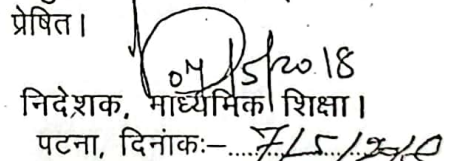 प्रेषित।
07/5/2018
निदेशक, माध्यमिक शिक्षा।
पटना, दिनांकः–....7/5/2010